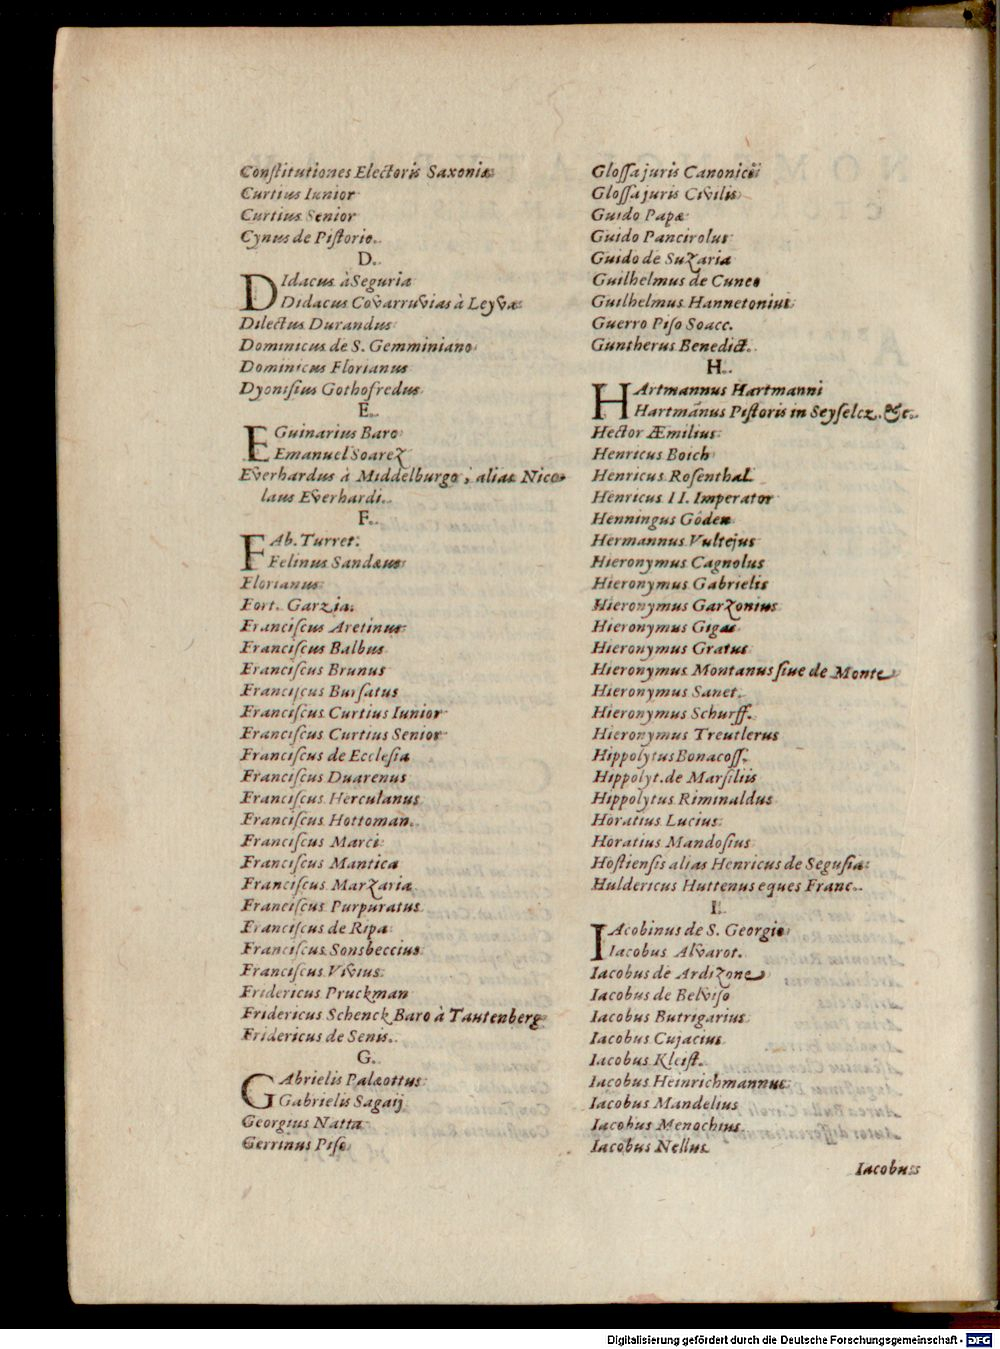 Constitutiones Electoris Saxoniæ
Curtius Iunior
Curtius Senior
Cynus de Pistorio.
D.
DIdacus à Seguria
Didacus Covarruvias à Leyva
Dilectus Durandus
Dominicus de S. Gemminiano
Dominicus Florianus
Dyonisius Gothofredus
E.
EGuinarius Baro
Emanuel Soarez
Everhardus à Middelburgo, alias Nico-
laus Everhardi.
F.
FAb. Turret.
Felinus Sandæus
Florianus
Fort. Garzia.
Franciscus Aretinus
Franciscus Balbus
Franciscus Brunus
Franciscus Bursatus
Franciscus Curtius Iunior
Franciscus Curtius Senior
Franciscus de Ecclesia
Franciscus Duarenus
Franciscus Herculanus
Franciscus Hottoman.
Franciscus Marci
Franciscus Mantica
Franciscus Marzaria
Franciscus Purpuratus
Franciscus de Ripa
Franciscus Sonsbeccius
Franciscus Vivius
Fridericus Pruckman
Fridericus Schenck Baro à Tautenberg
Fridericus de Senis.
G.
GAbrielis Palæottus
Gabrielis Sagaij
Georgius Natta
Gerrinus Piso
Glossa juris Canonici
Glossa juris Civilis
Guido Papæ
Guido Pancirolus
Guido de Suzaria
Guilhelmus de Cuneo
Guilhelmus Hannetonius
Guerro Piso Soacc.
Guntherus Benedict.
H.
HArtmannus Hartmanni
Hartmãnus Pistoris in Seyselcz. &c.
Hector Æmilius
Henricus Boich
Henricus Rosenthal
Henricus II. Imperator
Henningus Göden
Hermannus Vultejus
Hieronymus Cagnolus
Hieronymus Gabrielis
Hieronymus Garzonius
Hieronymus Gigas
Hieronymus Gratus
Hieronymus Montanus siue de Monte
Hieronymus Sanet.
Hieronymus Schurff.
Hieronymus Treutlerus
Hippolytus Bonacoss.
Hippolyt. de Marsiliis
Hippolytus Riminaldus
Horatius Lucius
Horatius Mandosius
Hostiensis alias Henricus de Segusia
Huldericus Huttenus eques Franc.
I.
IAcobinus de S. Georgio
Iacobus Alvarot.
Iacobus de Ardizone
Iacobus de Belviso
Iacobus Butrigarius
Iacobus Cujacius
Iacobus Kleist.
Iacobus Heinrichmannus
Iacobus Mandelius
Iacobus Menochius
Iacobus Nellus
Iacobus
Digitalisierung gefördert durch die Deutsche Forschungsgemeinschaft - DFG